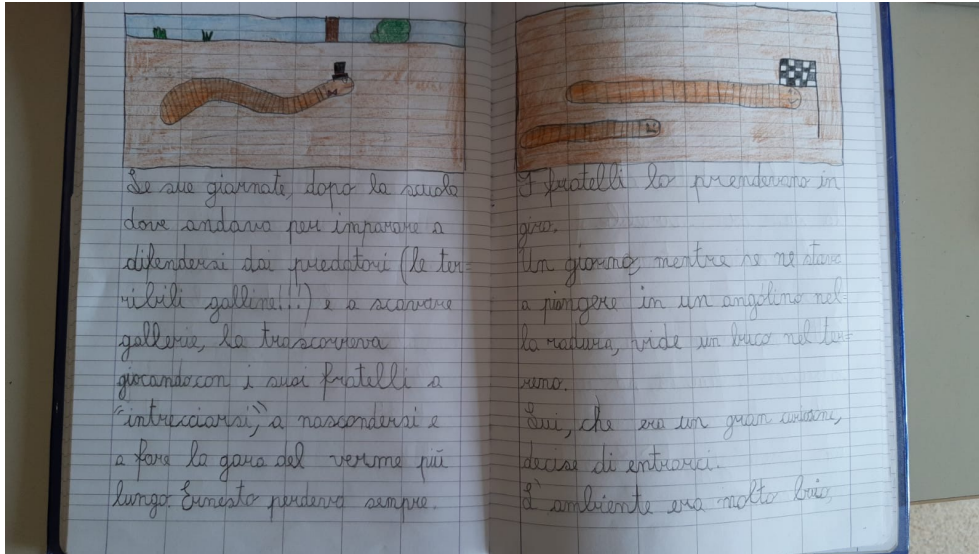 Le sue giornate, dopo la scuola
dove andava per imparare a
difendersi dai predatori (le ter=
ribili galline!!!) e a scavare
gallerie, la trascorreva
giocando con i suoi fratelli a
"intrecciarsi", a nascondersi e
a fare la gara del verme più
lungo. Ernesto perdeva sempre.
I fratelli lo prendevano in
giro.
Un giorno, mentre se ne stava
a piangere in un angolino nel=
la radura, vide un buco nel ter=
reno.
Lui, che era un gran curiosone,
decise di entrarci.
L'ambiente era molto buio,